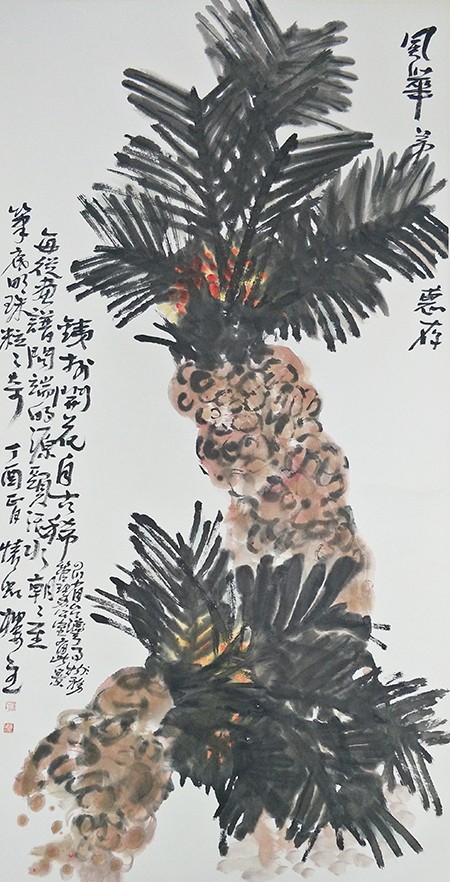 風華弟
惠存
銕樹開花自古稀
每從畫譜問端的源頭活水朝〻至
筆底明珠粒〻奇 丁酉 樓主